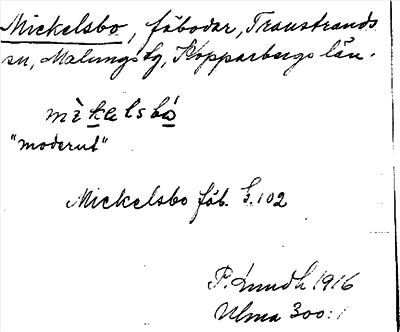 Mickelsbo, fäbodar, Transtrands
sn, Malungs tg, Kopparbergs län.
mìkelsbò
"modernt"
Mickelsbo fäb. S. 102
P. Lundh 1916
Ulma 300:1